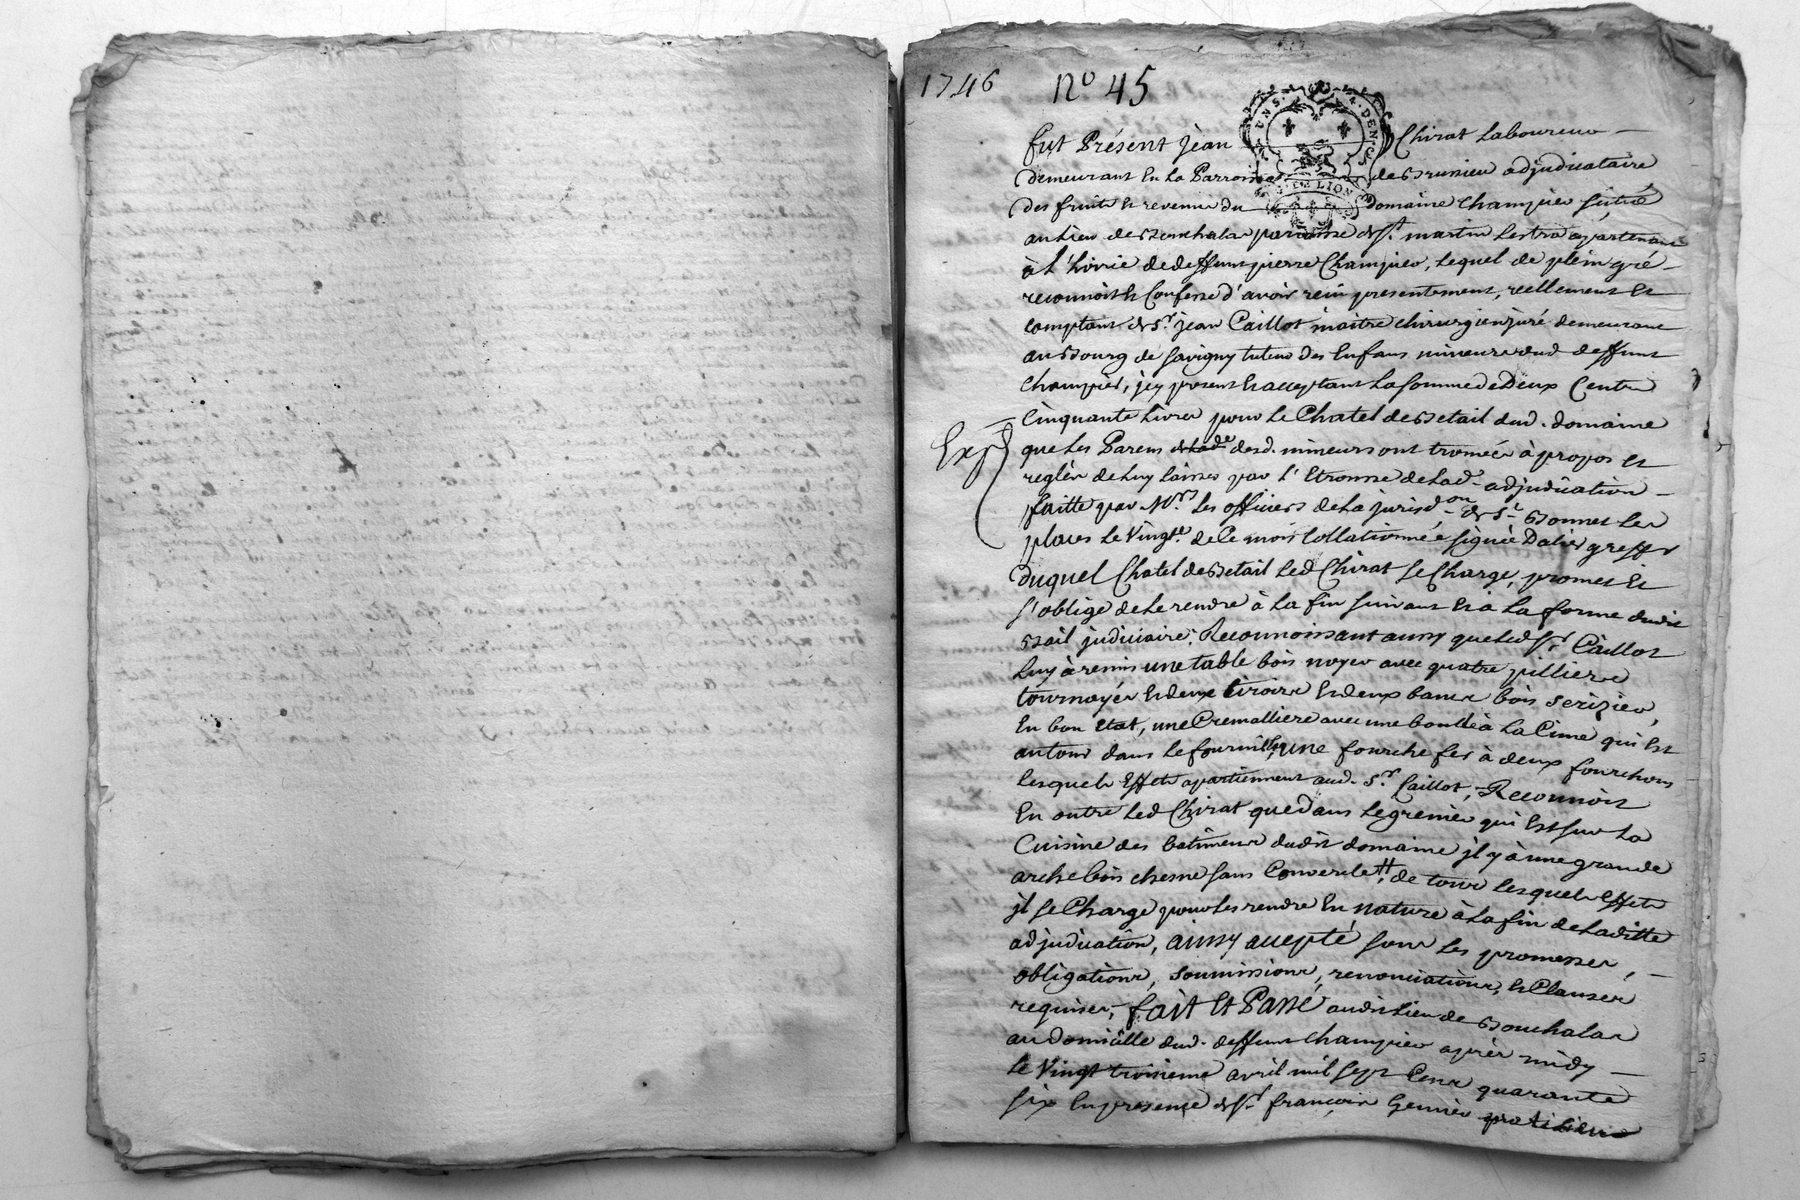 1746
nº 45
fut Présent jean Chirat Laboureur
Demeurant En La Parroisse de Brussieu adjudicataire
Des fruits Et revenus du Domaine Champier situé
au Lieu de Bouchalas parroisse de St. martin Lestra apartenant
à L'hoirie de deffunt pierre Champier, Lequel de plein gré
reconnoit Et Confesse d'avoir reçu presentement, reellement Et
comptant de Sr. jean Caillot maitre chirurgien juré demeurant
au Bourg de savigny tuteur des Enfans mineurs dud. deffunt
Champier, jcy present Et acceptant La somme de Deux Cents
Cinquante Livres pour Le Chatel de Betail dud. domaine
Exp
que Les Parens desd. mineurs ont trouvée à propos Et
reglée de Luy laisser par L'Etrousse de Lad. adjudication
faitte par Mrs. Les officiers de La jurisd.on de St. Bonnet Les
places Le Vingt.e de Ce mois Collationnée signée Dalier greffr
Duquel Chatel de Betail Led Chirat se Charge, promet Et
s'oblige de Le rendre à La fin suivant Et à La forme dudit
Bail judiciaire. Reconnoissant aussy que Led Sr. Caillot
Luy à remis une table bois noyer avec quatre pilliers
tournoyés Et deux tiroirs Et deux bancs bois serizier,
En bon état, une Cremalliere avec une boucle à La Cime qui Est
autour dans Le fournil, une fourche fer à deux fourchons
Lesquels Effets apartiennent aud. Sr. Caillot, Reconnoit
En outre Led Chirat que dans Le grenier qui Est sur La
Cuisine des bâtimens dudit domaine jl y à une grande
arche bois chesne sans Couvercle, de tous Lesquels Effets
jl se Charge pour Les rendre En nature à La fin de Laditte
adjudication, aussy accepté sous Les promesses,
obligations, soumissions, renonciations, Et Clauses
requises, fait Et Passé audit Lieu de Bouchalas
au Domicille dud. deffunt Champier après midy
Le Vingt troisieme avril mil sept Cent quarante
six En presence de Sr. françois praticien